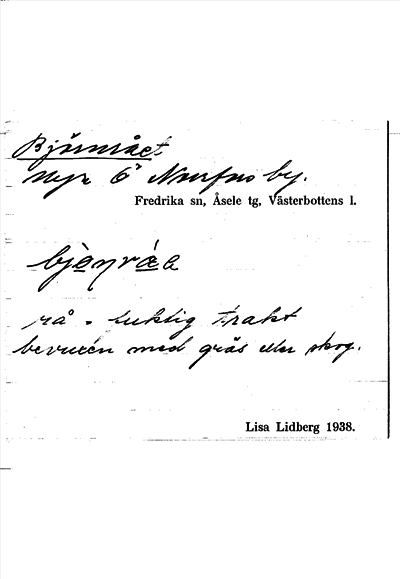 Björnrået
Myr 6 Norrfors by.
Fredrika sn, Åsele tg, Västerbottens l.
rå - fuktig trakt
bevuxen med gräs eller skog.
Lisa Lidberg 1938.